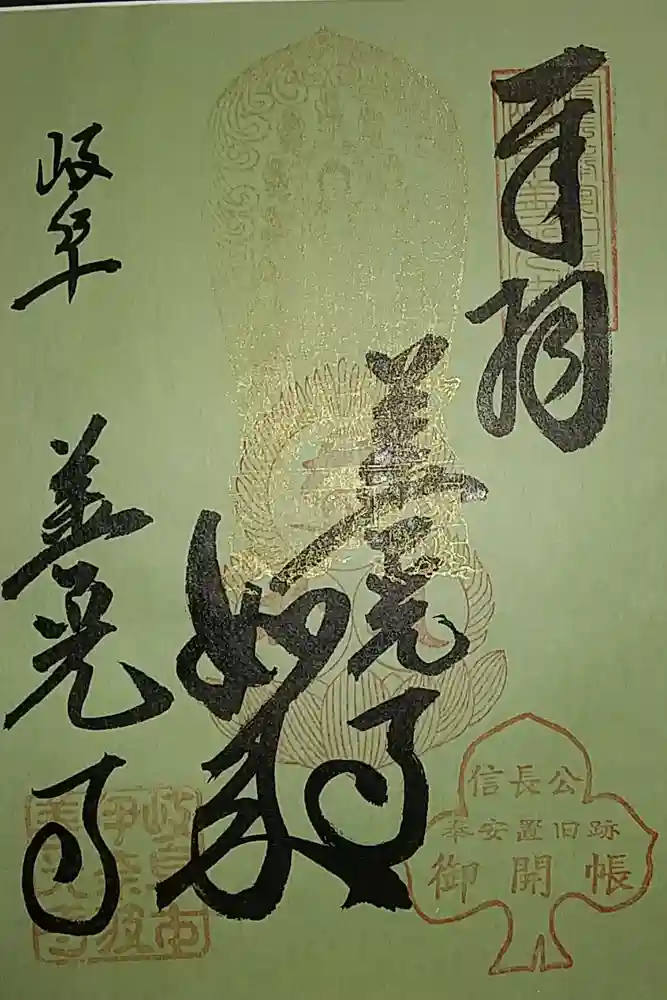 善光寺
如来
岐阜
善光寺
岐阜市
伊奈波
善光寺
信長公
奉安置旧跡
御開帳